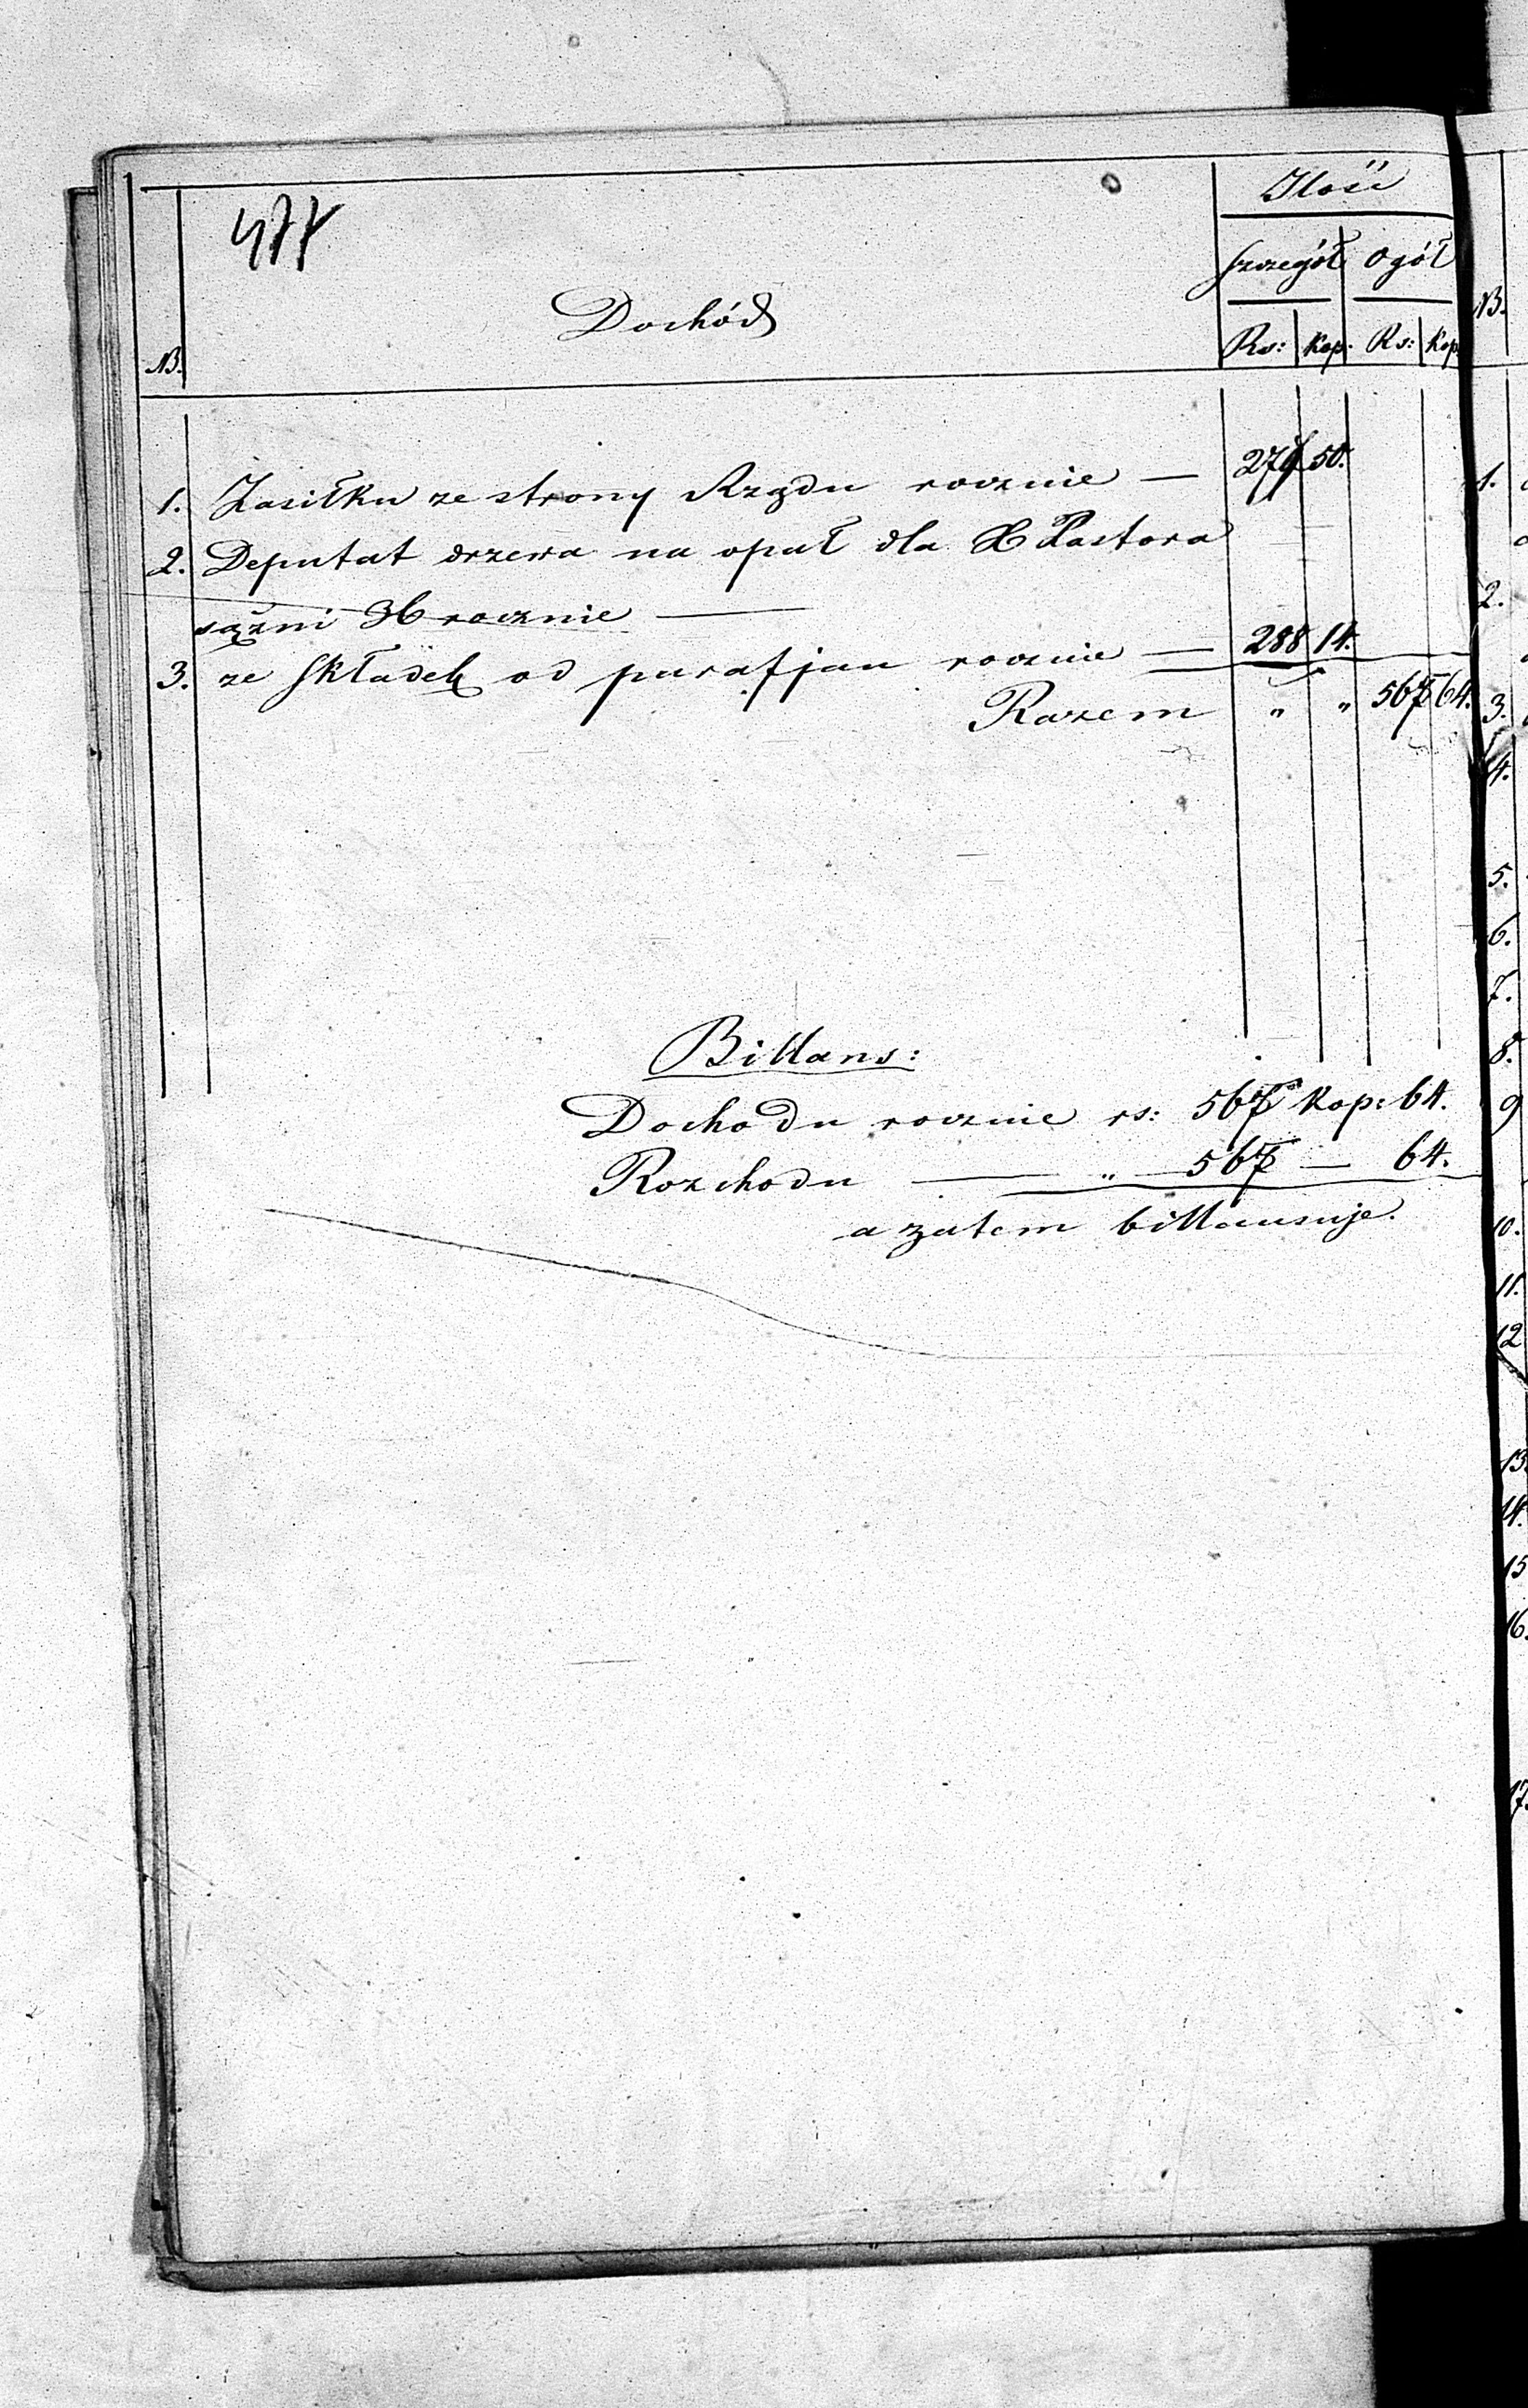 477
Ilość
szczegół ogół
Dochód
NB. Rs: kop. Rs: kop.
1. Zasiłku ze strony Rządu rocznie — 279 50.
2. Deputat drzewa na opał dla X Pastora
sążni 36 rocznie —
3. ze składek od parafjan rocznie — 288 14.
Razem " " 567 64.
Billans:
Dochodu rocznie rs: 567 kop: 64.
Rozchodu — " — 567 — 64.
a zatem billansuje.
NB.
1.
2.
3.
4.
5.
6.
7.
8.
9
10.
11.
12
13
14.
15
16.
17.